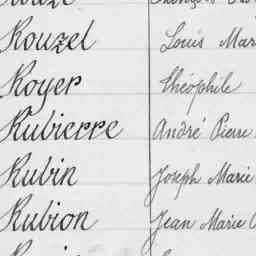 Rouzel Louis Mar
Royer Théophile
Rubierre André Pierre
Rubin Joseph Marie
Rubion Jean Marie